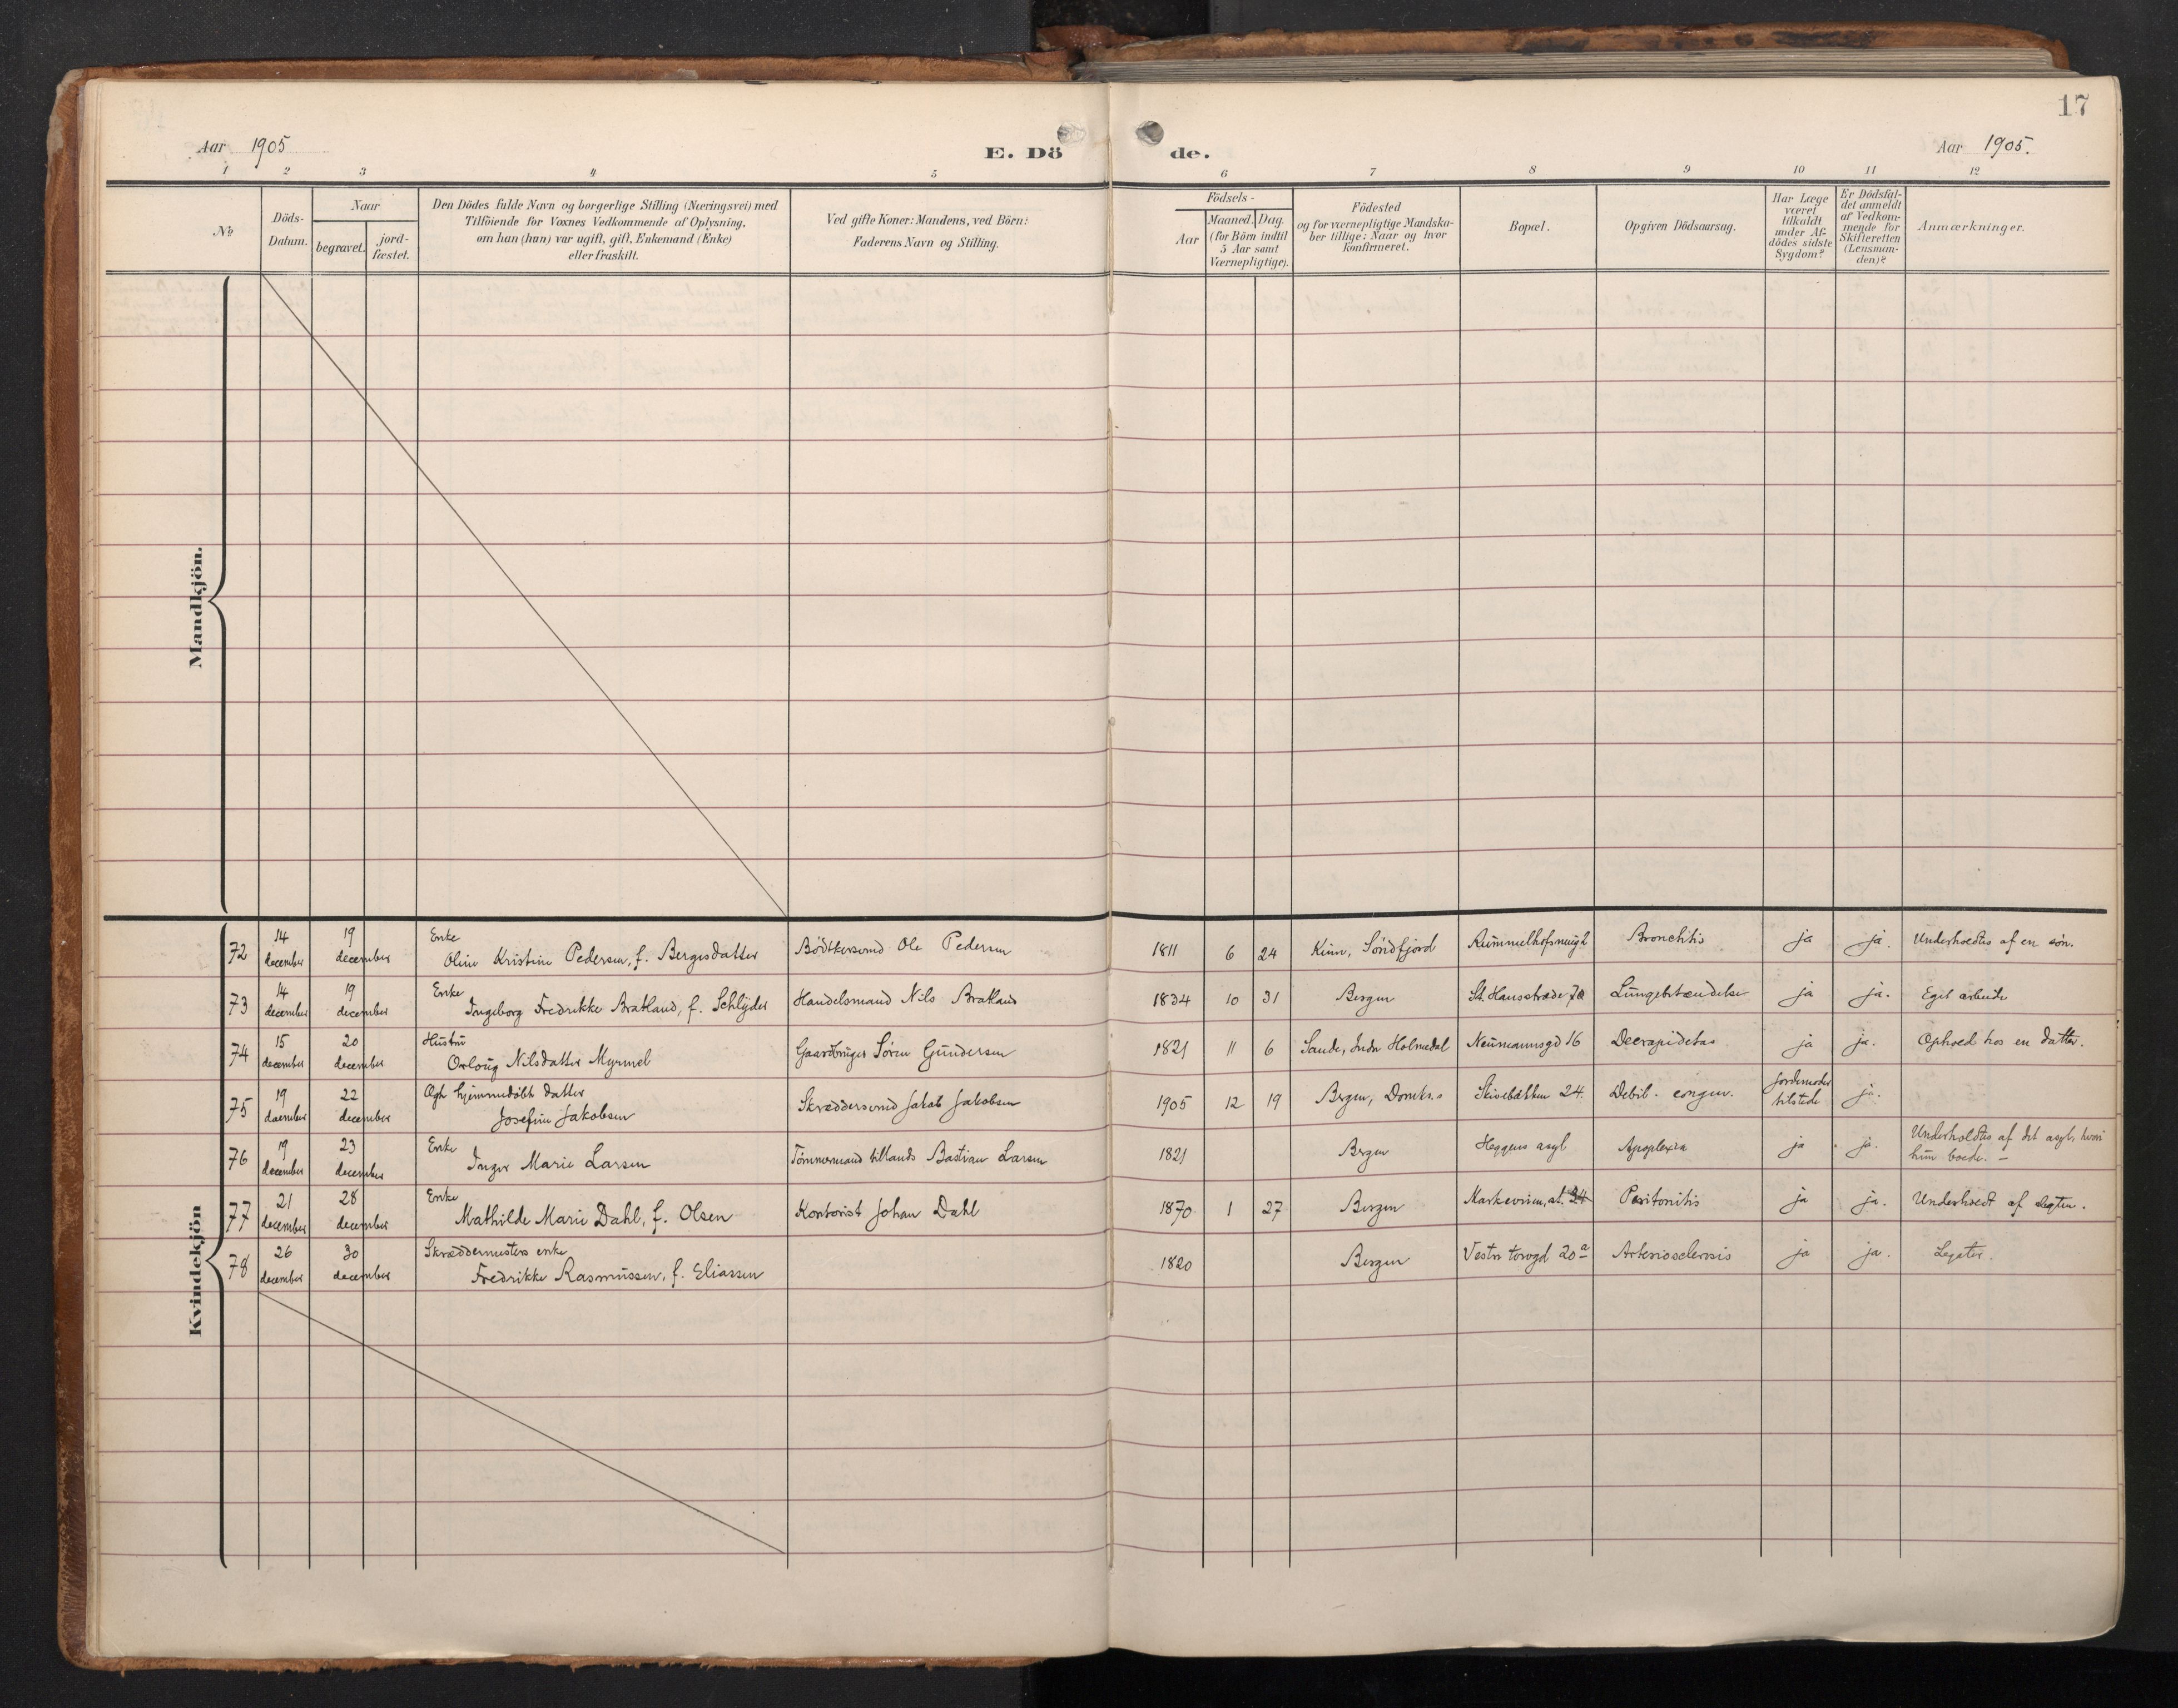 17
Aar 1905
E. Dö
de.
Aar 1905.
1 2 3 4 5 6 7 8 9 10 11 12
No
Döds-
Datum.
Naar
begravet.
jord-
fæstet.
Den Dödes fulde Navn og borgerlige Stilling (Næringsvei) med
Tilföiende for Voxnes Vedkommende af Oplysning,
om han (hun) var ugift, gift, Enkemand (Enke)
eller fraskilt.
Ved gifte Koner: Mandens, ved Börn:
Faderens Navn og Stilling.
Födsels-
Aar
Maaned. Dag.
(for Börn indtil
5 Aar samt
Værnepligtige).
Födested
og for værnepligtige Mandska-
ber tillige: Naar og hvor
konfirmeret.
Bopæl.
Opgiven Dödsaarsag.
Har Læge
været
tilkaldt
under Af-
dödes sidste
Sygdom?
Er Dödsfal-
det anmeldt
af Vedkom-
mende for
Skifteretten
(Lensman-
den)?
Anmærkninger.
Mandkjön.
Kvindekjön
72 14 december 19 december Enke
Oline Kristine Pedersen, f. Bergesdatter Bödtkersvend Ole Pedersen 1811 6 24 Kinn, Söndfjord Bronchitis ja ja. Underholdtes af en sön.
73 14 december 19 december Enke
Ingeborg Fredrikke Bratland, f. Schlyder Handelsmand Nils Bratland 1834 10 31 Bergen St. Hansstræde 7a Lungebetændelse ja ja. Eget arbeide
74 15 december 20 december Hustru
Orloug Nilsdatter Myrmel Gaardbruger Sören Gundersen 1821 11 6 Sande, Indre Holmedal Neumannsgd 16 Decrapidetas ja ja. Ophold hos en datter.
75 19 december 22 december Ægte hjemmedöbt datter
Josefine Jakobsen Skræddersvend Jakob Jakobsen 1905 12 19 Bergen, Domk.s Skivebakken 24. Debil. congen. Jordemoder
tilstede ja.
76 19 december 23 december Enke
Inger Marie Larsen Tömmermand tillands Bastian Larsen 1821 Bergen Heggens asyl Apoplexia ja ja. Underholdtes af det asyl, hvori
hun boede. –
77 21 december 28 december Enke
Mathilde Marie Dahl, f. Olsen Kontorist Johan Dahl 1870 1 27 Bergen Markeveien, 24 Peritonitis ja ja. Underholdt af Legater.
78 26 december 30 december Skræddermesters enke
Fredrikke Rasmussen, f. Eliassen 1820 Bergen Vestre torvgd 20a Arteriosclerosis ja ja. Legater.